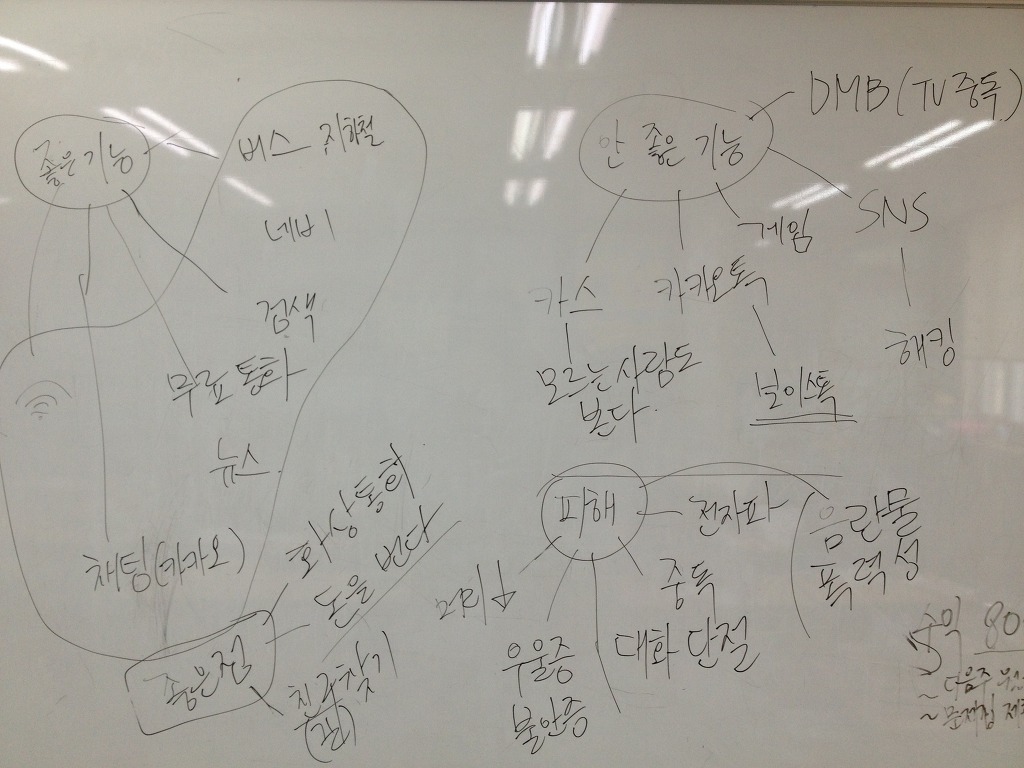 좋은 기능
버스 지하철
네비
검색
무료통화
뉴스
채팅(카카오)
좋은점
화상통화
돈을 번다
친구찾기
안 좋은 기능
DMB (TV 중독)
SNS
해킹
게임
카카오톡
보이스톡
카스
모르는 사람도
본다.
피해
전자파
음란물
폭력성
중독
대화 단절
머리↓
우울증
불안증
80
~ 다음주
~ 문제점